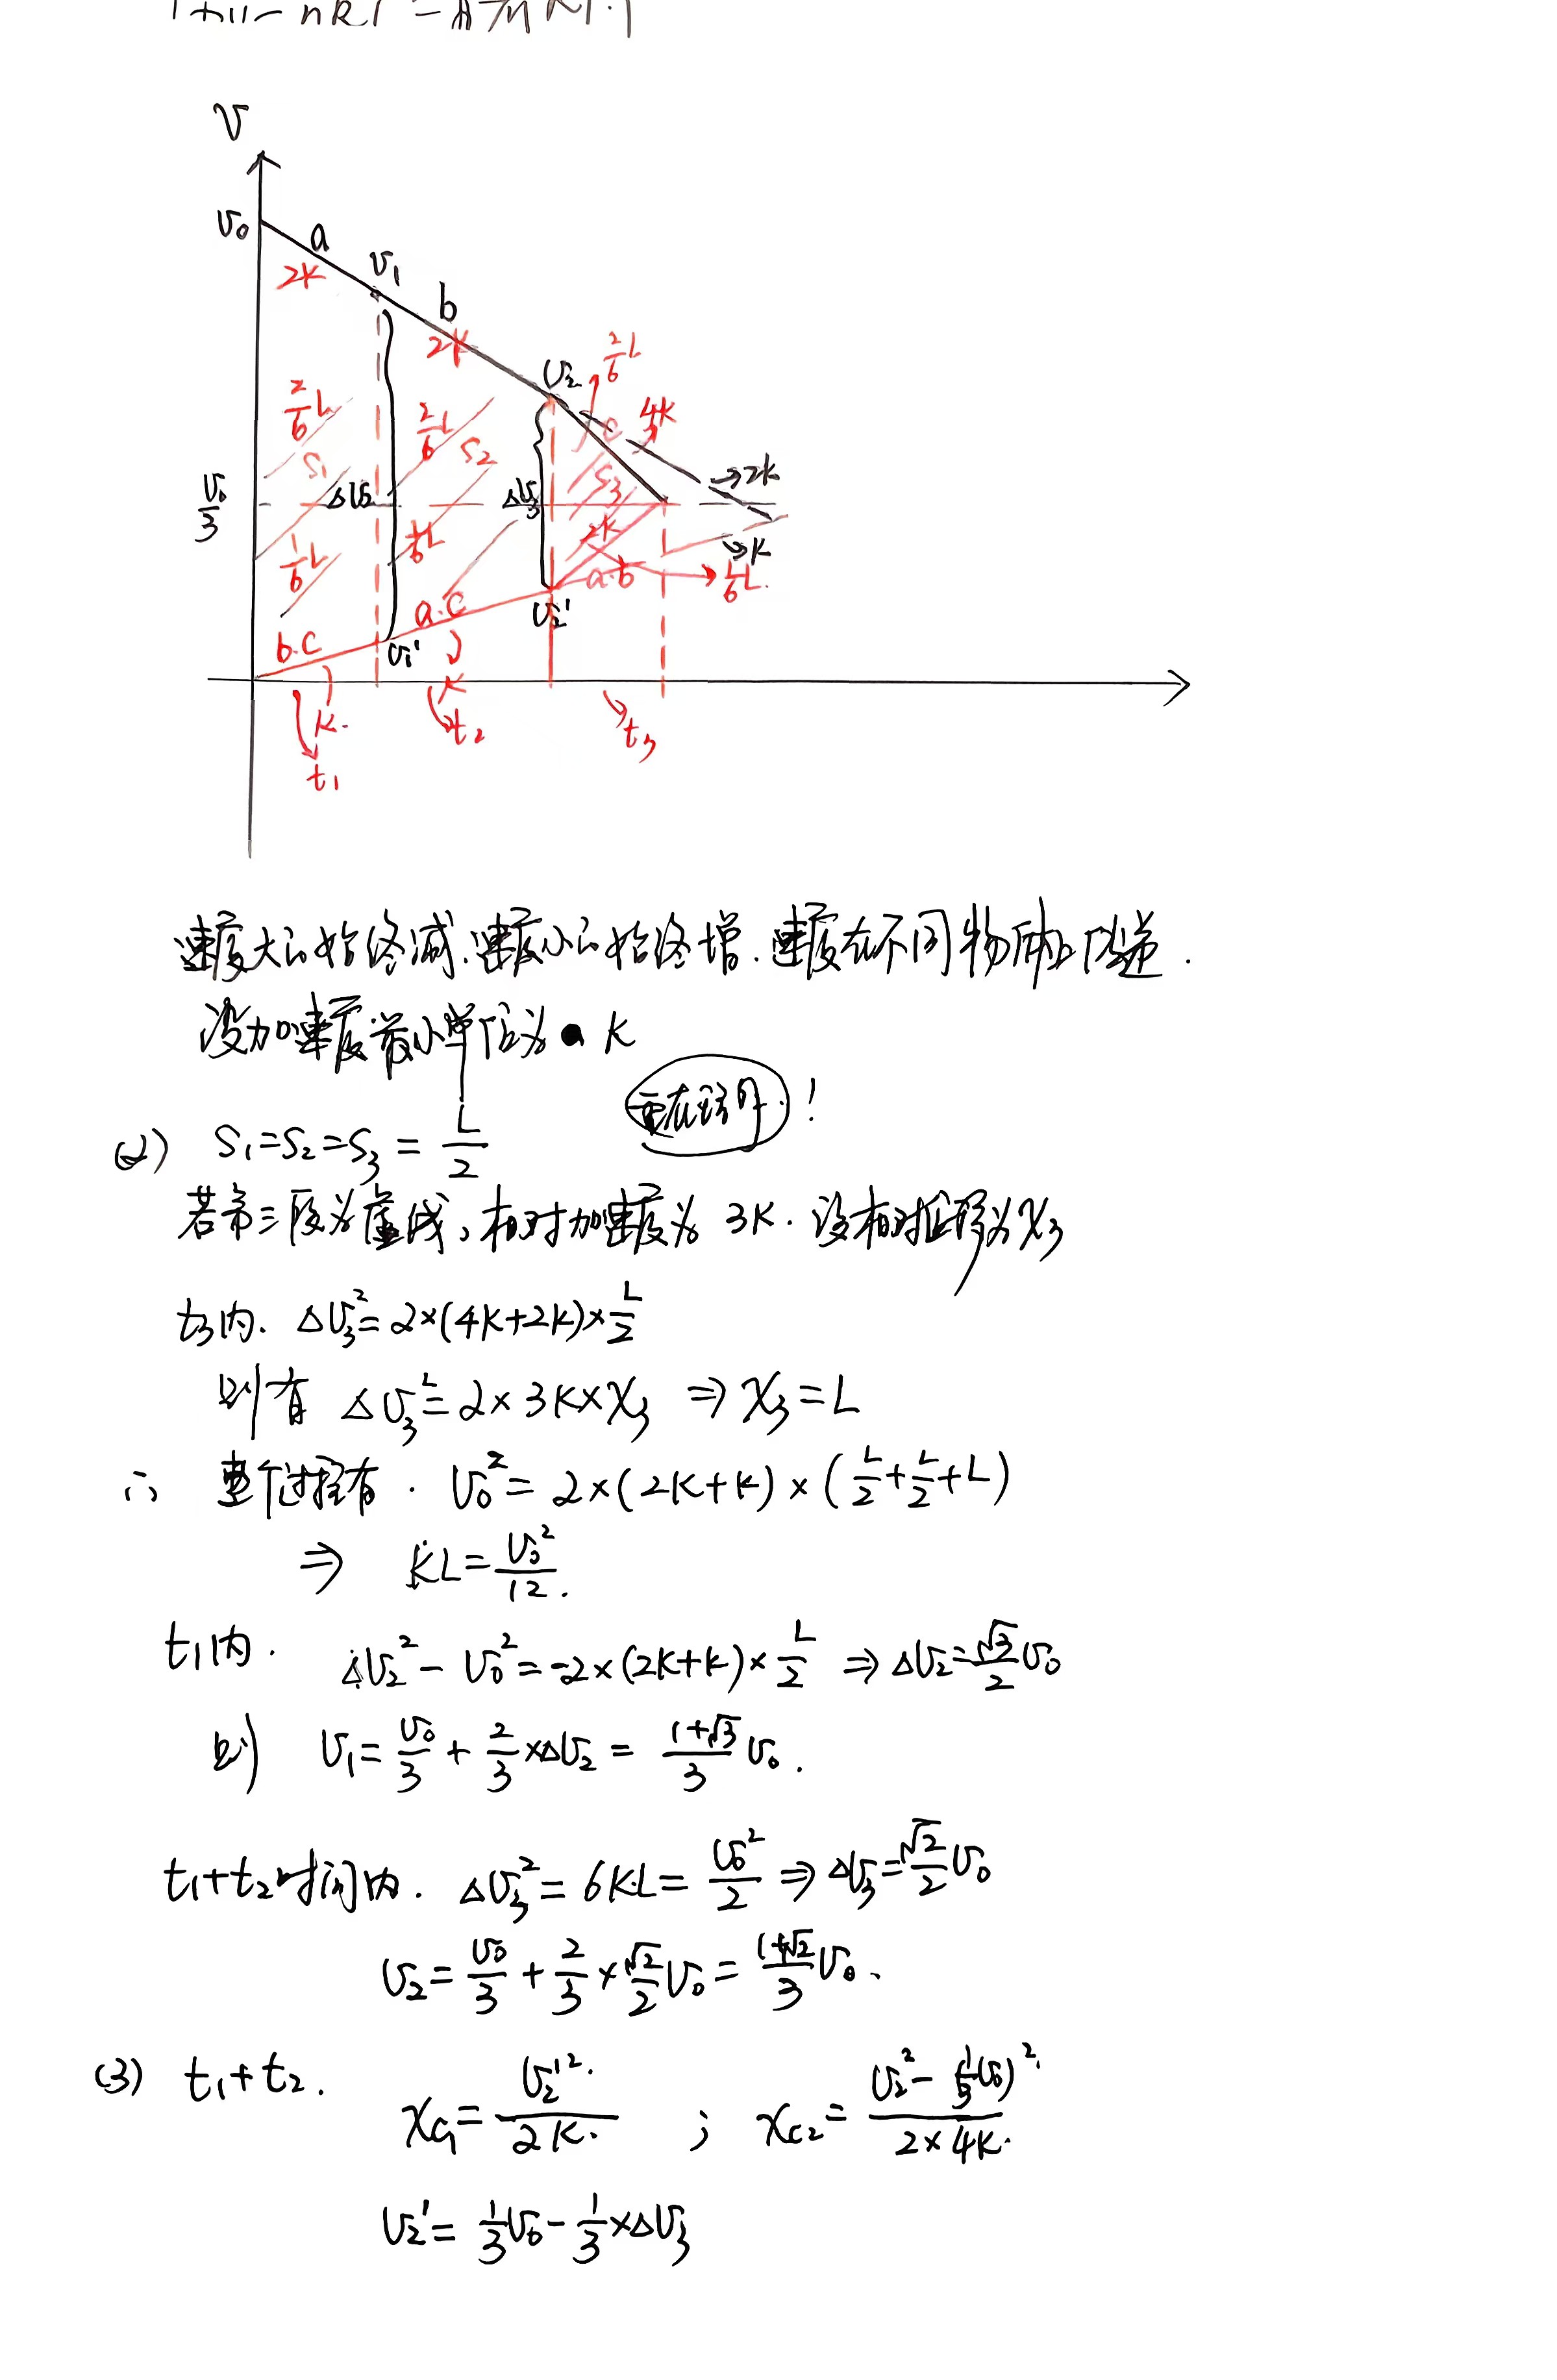 V
v₀
a
2K
v₁
b
2K
v₂
2/6 L
4K
2/6 L
2/6 L
S₁
S₂
c
S₃
→2K
v₀/3
Δv₂
Δv₃
2K
→K
1/6 L
1/6 L
a·b
→ 1/6 L.
b·c
v₁'
a·c
v₂'
K.
K
t₁
t₂
t₃
速度大的始终减、速度小的始终增.速度在不同物体上传递.
设加速度最小单位为 K
(2) S₁=S₂=S₃ = L/2
!
若第三段为虚线,相对加速度为 3K. 设相对位移为x₃
t₃内. Δv₃²=2×(4K+2K)×L/2
则有 Δv₃²=2×3K×x₃ ⇒ x₃=L
∴ 整个过程有. v₀²=2×(2K+K)×(L/2+L/2+L)
⇒ KL=v₀²/12.
t₁内. Δv₂²-v₀²=-2×(2K+K)×L/2 ⇒ Δv₂=√3/2 v₀
则 v₁=v₀/3+2/3×Δv₂=(1+√3)/3 v₀.
t₁+t₂时间内. Δv₃²=6KL=v₀²/2 ⇒ Δv₃=√2/2 v₀
v₂=v₀/3+2/3×√2/2 v₀=(1+√2)/3 v₀.
(3) t₁+t₂. x_C₁=v₂'²/2K. ; x_C₂=(v₂²-(1/3 v₀)²)/(2×4K).
v₂'=1/3 v₀-1/3×Δv₃